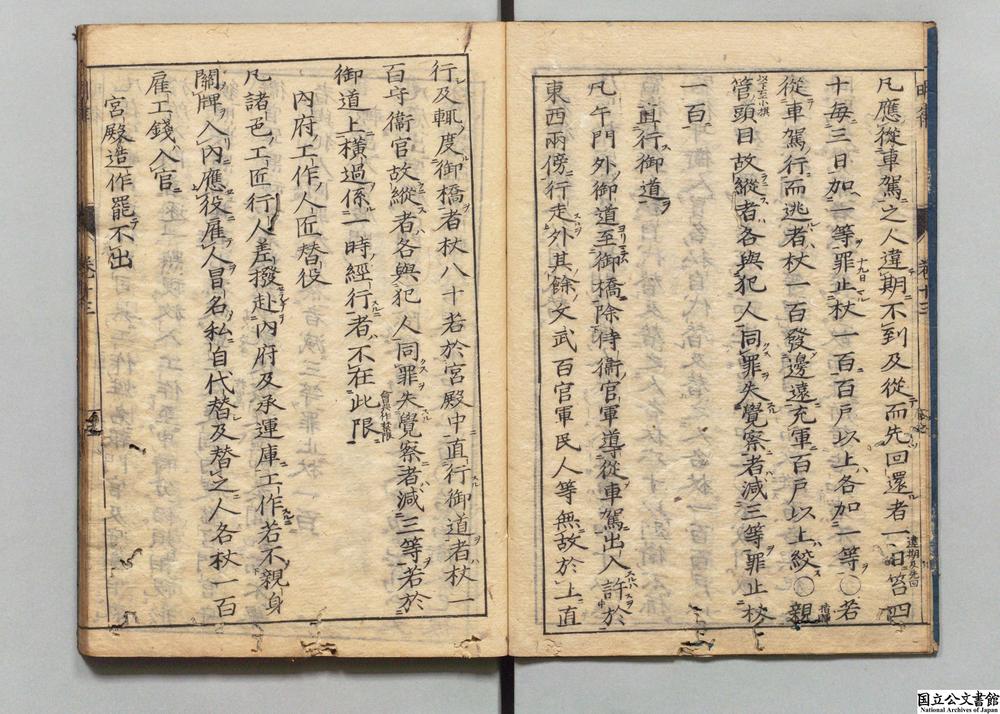 凡應從車駕之人違期不到及從而先回還者一日笞四
十毎三日加一等罪止杖一百百戸以上各加一等〇若
從車駕行而逃者杖一百發邊遠充軍百戸以上絞〇親
管頭目故縱者各與犯人同罪失覺察者減三等罪止杖
一百
直行御道
凡午門外御道至御橋除侍衞官軍導從車駕出入許於
東西兩傍行走外其餘文武百官軍民人等無故於上直
行及輒度御橋者杖八十若於宮殿中直行御道者杖一
百守衞官故縱者各與犯人同罪失覺察者減三等若於
御道上横過係一時經行者不在此限
內府工作人匠替役
凡諸色工匠行人差撥赴內府及承運庫工作若不親身
關牌入內應役雇人冒名私自代替及替之人各杖一百
雇工錢入官
宮殿造作罷不出
卷十三
国立公文書館
National Archives of Japan